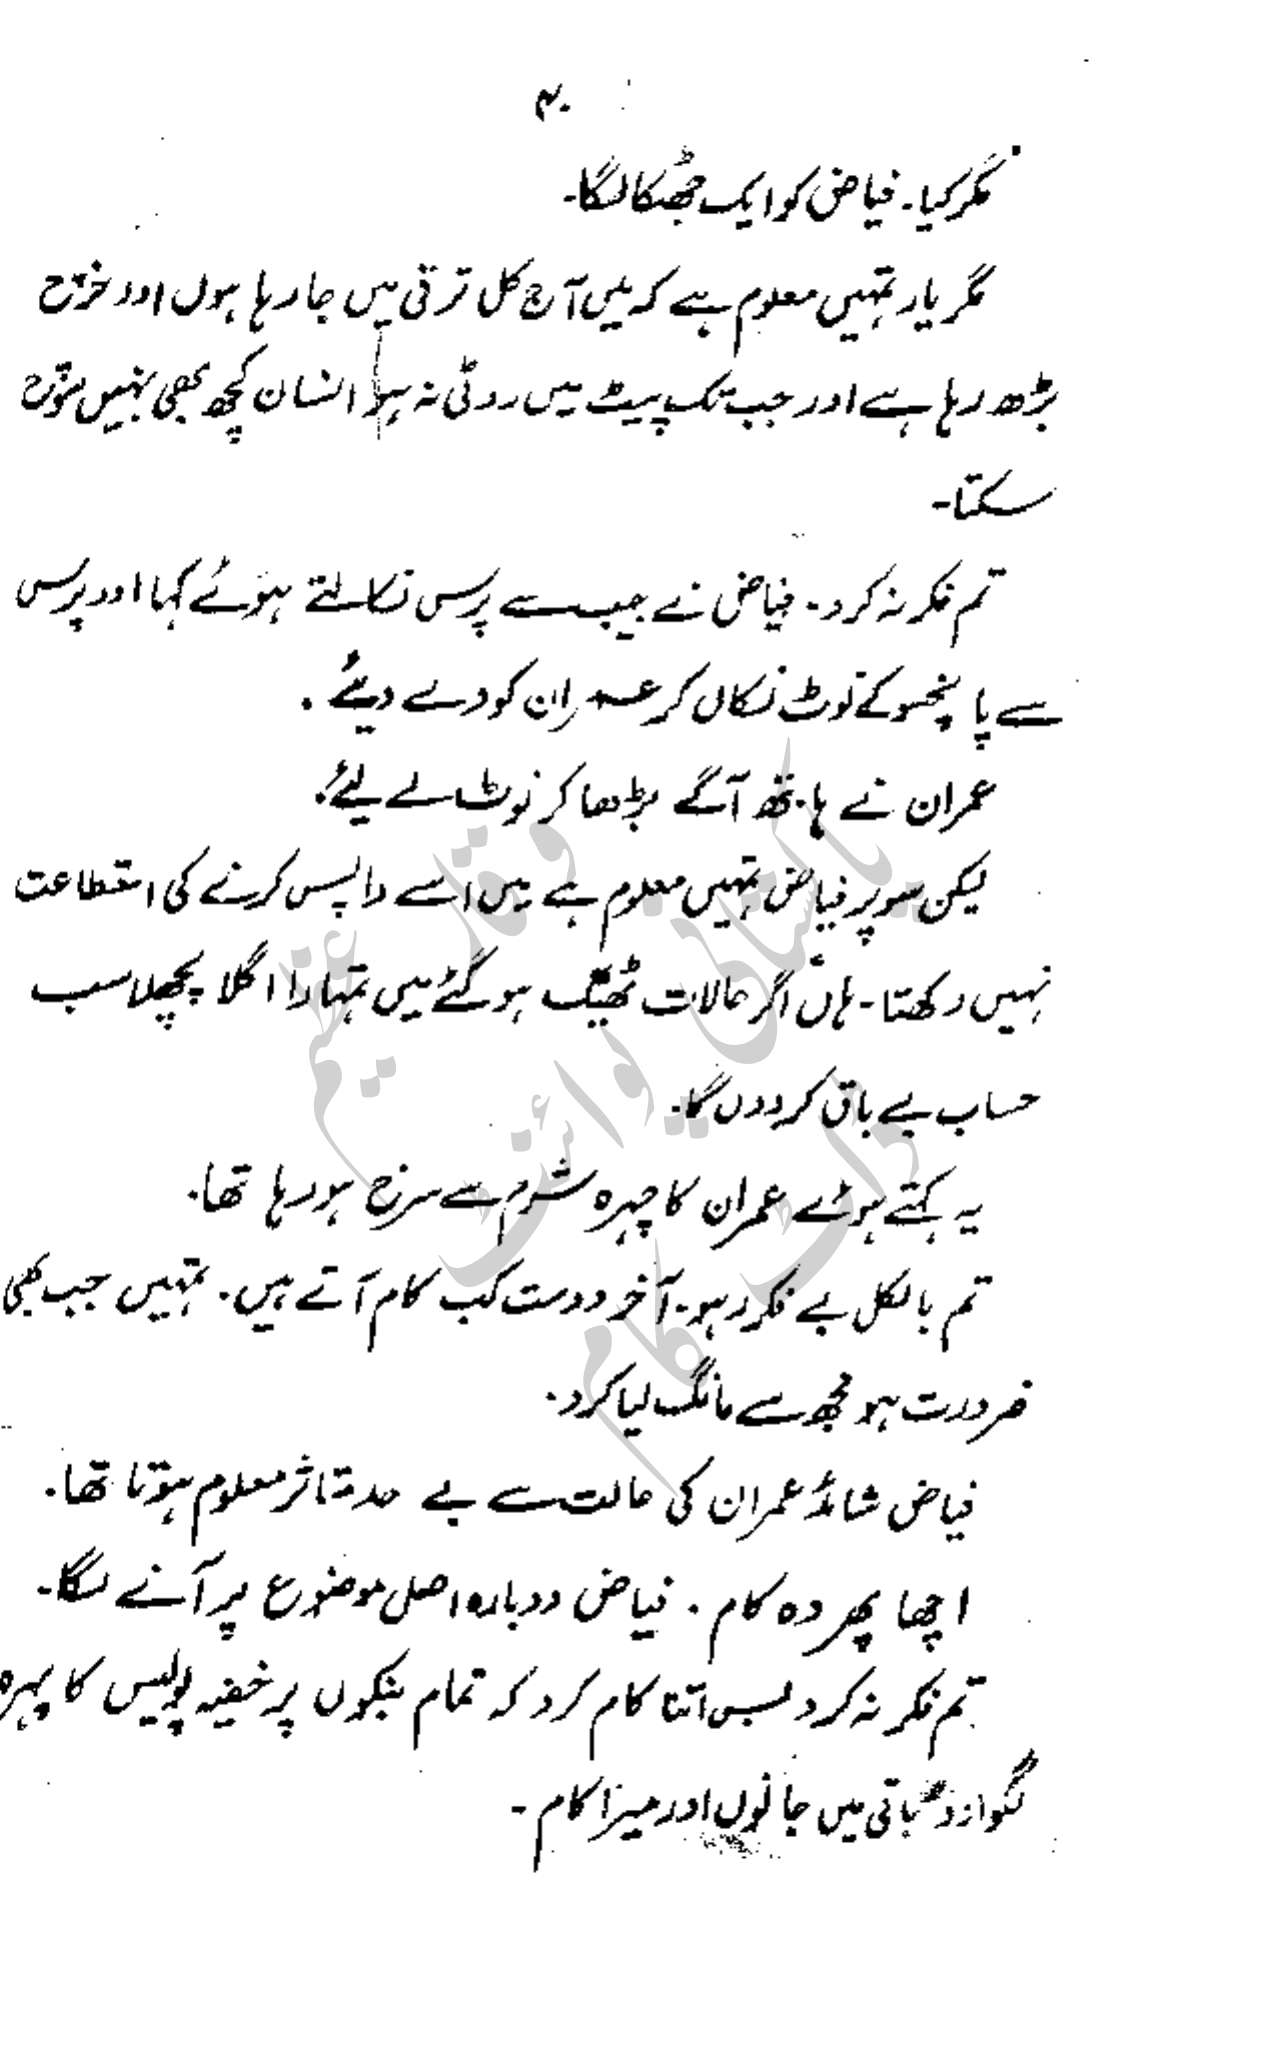 ۴۰
مگر کیا۔ فیاض کو ایک جھٹکا لگا۔
مگر یار تمہیں معلوم ہے کہ میں آج کل ترقی میں جا رہا ہوں اور خرچ
بڑھ رہا ہے اور جب تک پیٹ میں روٹی نہ ہو انسان کچھ بھی نہیں سوچ
سکتا۔
تم فکر نہ کرو۔ فیاض نے جیب سے پرس نکالتے ہوئے کہا اور پرس
سے پانچسو کے نوٹ نکال کر عمران کو دے دیئے۔
عمران نے ہاتھ آگے بڑھا کر نوٹ لے لیئے۔
لیکن سوپر فیاض تمہیں معلوم ہے میں اسے واپس کرنے کی استطاعت
نہیں رکھتا۔ ہاں اگر حالات ٹھیک ہو گئے میں تمہارا اگلا پچھلا سب
حساب بے باق کر دوں گا۔
یہ کہتے ہوئے عمران کا چہرہ شرم سے سرخ ہو رہا تھا۔
تم بالکل بے فکر رہو۔ آخر دوست کب کام آتے ہیں۔ تمہیں جب بھی
ضرورت ہو مجھ سے مانگ لیا کرو۔
فیاض شائد عمران کی حالت سے بے حد متاثر معلوم ہوتا تھا۔
اچھا پھر وہ کام۔ فیاض دوبارہ اصل موضوع پر آنے لگا۔
تم فکر نہ کرو بس اتنا کام کرو کہ تمام بنکوں پر خفیہ پولیس کا پہرہ
لگوا دو باقی میں جانوں اور میرا کام۔
پاکستانی پوائنٹ
ڈاٹ کام
وقار عظیم